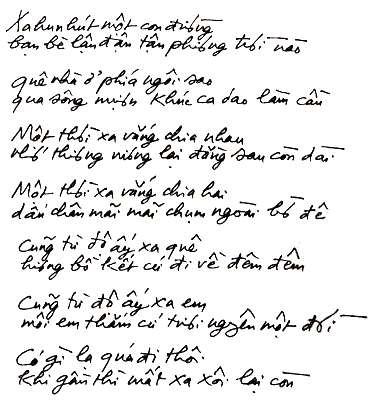 Xa hun hút một con đường
bạn bè lận đận tận phương trời nào
quê nhà ở phía ngôi sao
qua sông mượn khúc ca dao làm cầu
Một thời xa vắng chia nhau
nhớ thương vương lại đằng sau còn dài
Một thời xa vắng chia hai
dấu chân mãi mãi chụm ngoài bờ đê
Cũng từ độ ấy xa quê
hương bồ kết cứ đi về đêm đêm
Cũng từ độ ấy xa em
môi em thắm cứ tươi nguyên một đời
Có gì lạ quá đi thôi
Khi gần thì mất xa xôi lại còn